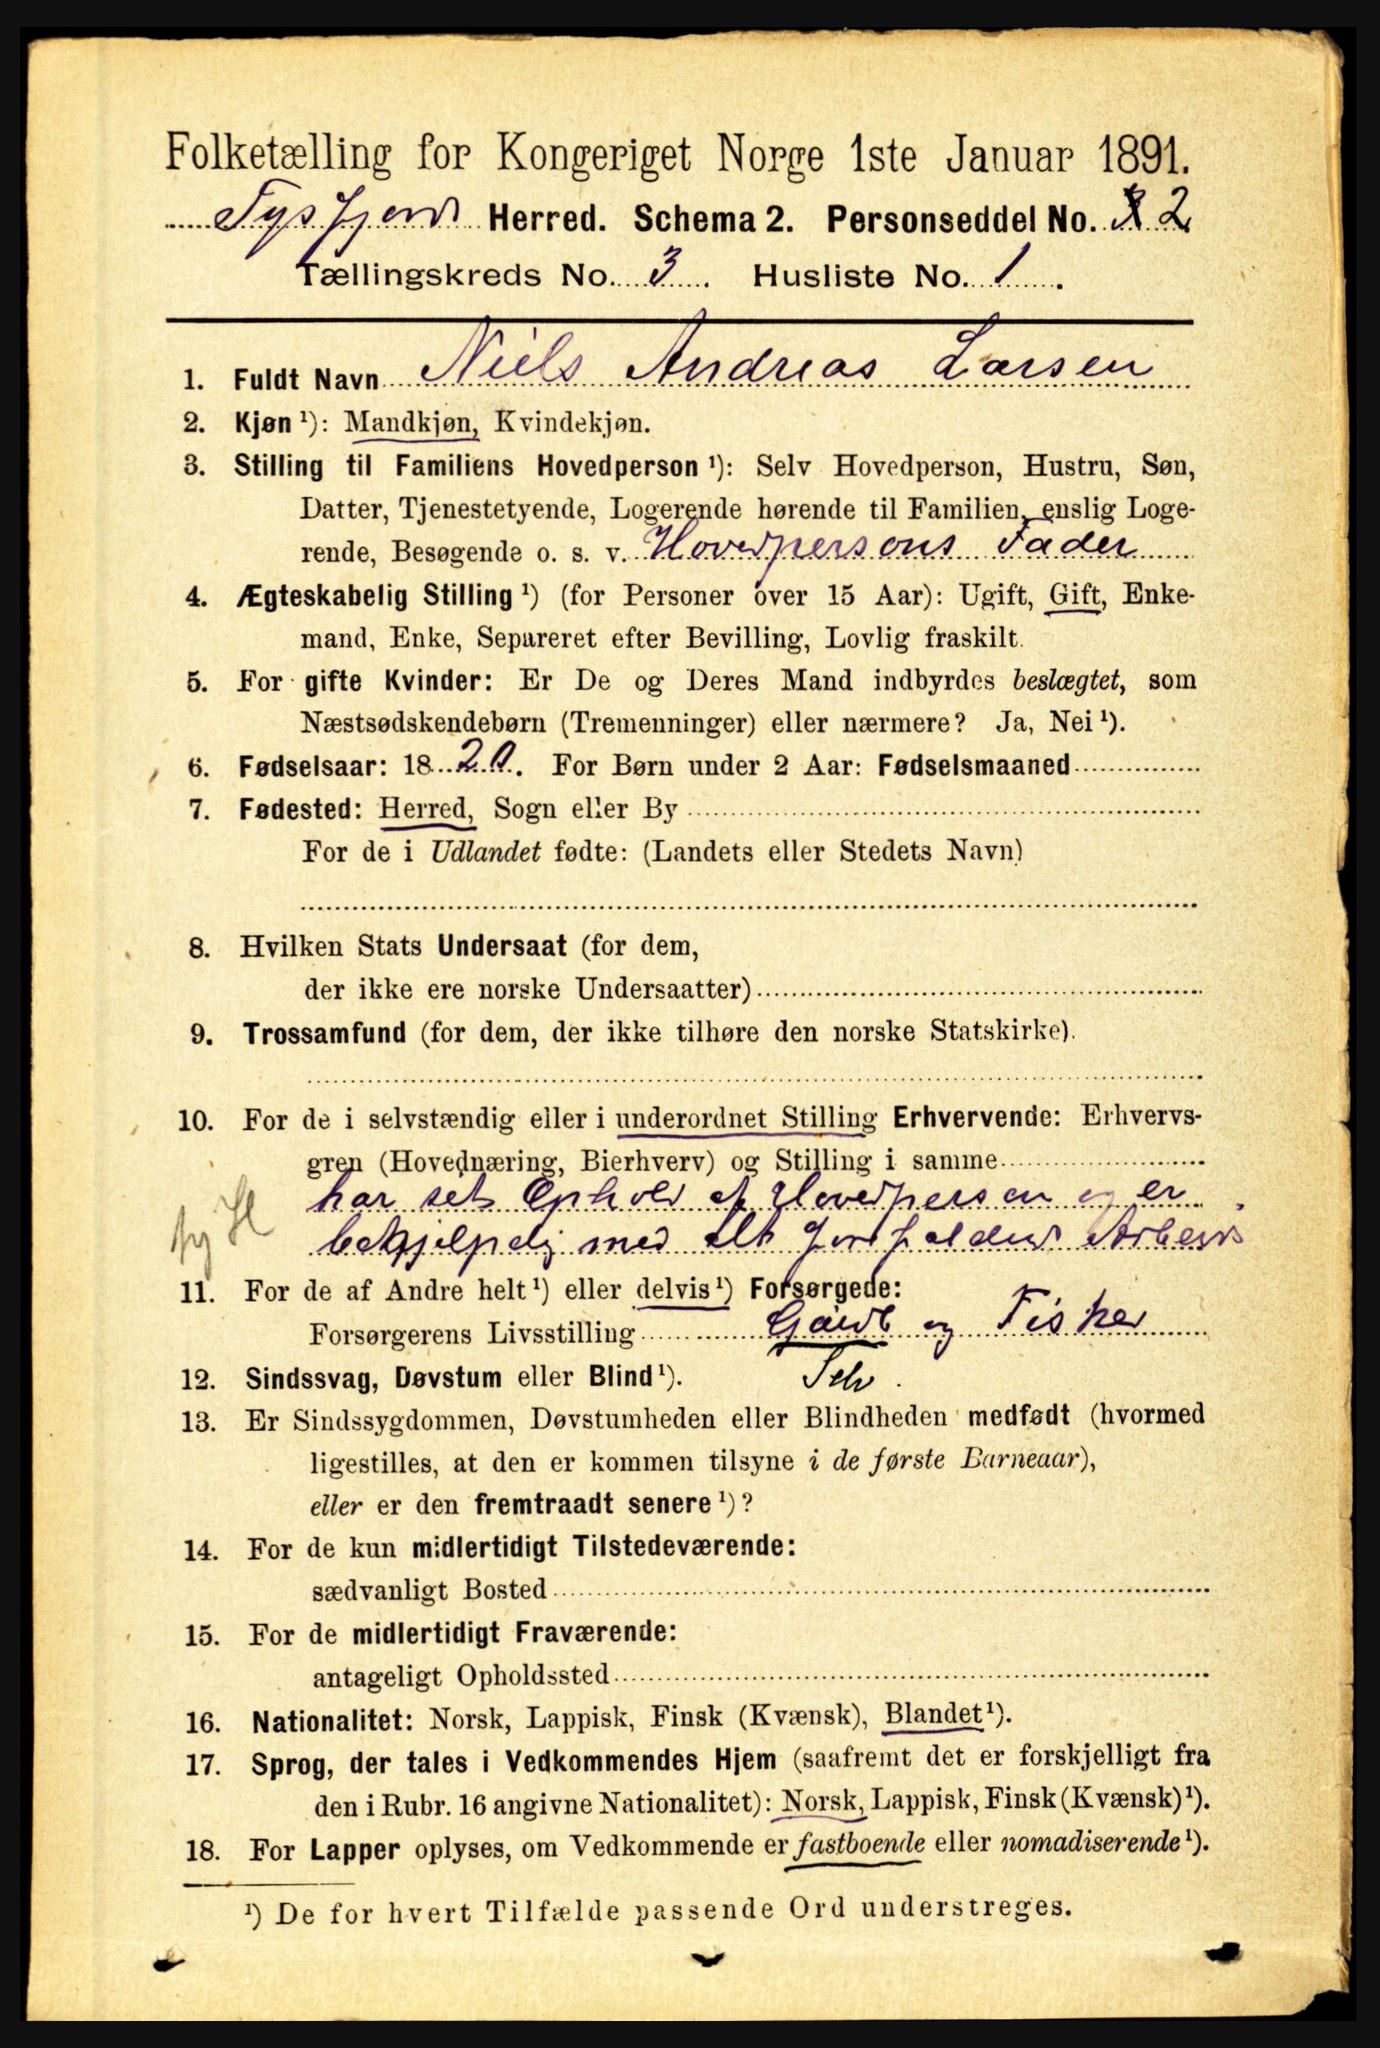 Folketælling for Kongeriget Norge 1ste Januar 1891.
Tysfjord Herred. Schema 2. Personseddel No. 2
Tællingskreds No. 3. Husliste No. 1.
1. Fuldt Navn Niels Andreas Larsen
2. Kjøn ¹): Mandkjøn, Kvindekjøn.
3. Stilling til Familiens Hovedperson ¹): Selv Hovedperson, Hustru, Søn,
Datter, Tjenestetyende, Logerende hørende til Familien, enslig Loge-
rende, Besøgende o. s. v. Hovedpersons Fader
4. Ægteskabelig Stilling ¹) (for Personer over 15 Aar): Ugift, Gift, Enke-
mand, Enke, Separeret efter Bevilling, Lovlig fraskilt.
5. For gifte Kvinder: Er De og Deres Mand indbyrdes beslægtet, som
Næstsødskendebørn (Tremenninger) eller nærmere? Ja, Nei ¹).
6. Fødselsaar: 1820. For Børn under 2 Aar: Fødselsmaaned
7. Fødested: Herred, Sogn eller By
For de i Udlandet fødte: (Landets eller Stedets Navn)
8. Hvilken Stats Undersaat (for dem,
der ikke ere norske Undersaatter)
9. Trossamfund (for dem, der ikke tilhøre den norske Statskirke).
10. For de i selvstændig eller i underordnet Stilling Erhvervende: Erhvervs-
gren (Hovednæring, Bierhverv) og Stilling i samme
har sit Ophold af Hovedpersen og er
behjelpelig med alt forefaldende Arbeide
11. For de af Andre helt ¹) eller delvis ¹) Forsørgede:
Forsørgerens Livsstilling Gaardb og Fisker
12. Sindssvag, Døvstum eller Blind ¹). Selv.
13. Er Sindssygdommen, Døvstumheden eller Blindheden medfødt (hvormed
ligestilles, at den er kommen tilsyne i de første Barneaar),
eller er den fremtraadt senere ¹)?
14. For de kun midlertidigt Tilstedeværende:
sædvanligt Bosted
15. For de midlertidigt Fraværende:
antageligt Opholdssted
16. Nationalitet: Norsk, Lappisk, Finsk (Kvænsk), Blandet ¹).
17. Sprog, der tales i Vedkommendes Hjem (saafremt det er forskjelligt fra
den i Rubr. 16 angivne Nationalitet): Norsk, Lappisk, Finsk (Kvænsk) ¹).
18. For Lapper oplyses, om Vedkommende er fastboende eller nomadiserende ¹).
¹) De for hvert Tilfælde passende Ord understreges.